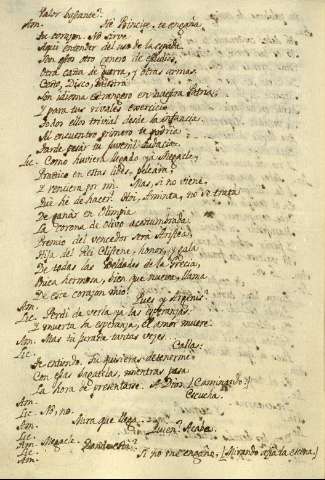 Valor bastante?
Am. No Principe, te engaña
Tu corazon. No sirve
Aqui entender del uso de la espada
Son otro genero de
Otra caña de guerra, y otras armas.
Cesto, Disco, Palestra
Son idioma extrangero en nuestra Patria;
Y para tus rivales exercicio
Todos ellos trivial desde la infancia.
Al encuentro primero te podria
Tarde pesar tu juvenil audacia.
Lic. Como huviera llegado ya Megacle,
Practico en estas lides, peleara,
I venciera por mi. Mas, si no viene,
Que hè de hacer? Hoi, Aminta, no se trata
De ganar en Olimpia
La corona de olivo acostumbrada:
Premio del vencedor serà Aristea,
Hija del Rei Clistene, honor, y gala
De todas las Beldades de la Grecia,
Unica hermosa, bien que nueva, llama
De este corazon mio.
Am. Pues y Argenis?
Lic. Perdi de verla ya las esperanzas.
I muerta la esperanza, el amor muere.
Am. Mas tu jurabas tantas veces.
Lic. Callas:
Te entiendo. Tu quisieras detenerme
Con esas bagatelas, mientras pasa
La hora de presentarse. A Dios. (Caminando)
Am. Escucha.
Lic. No, no.
Am. Mira que llega
Lic. Quien? Acaba
Am. Megacle.
Lic. Donde està?
Am. Si no me engaño, (Mirando àcia la escena)